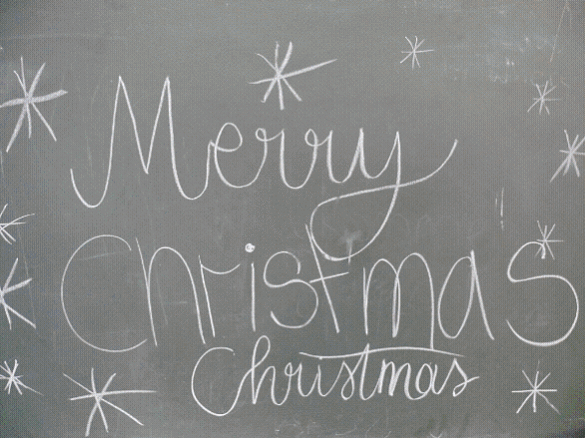 Merry
Christmas
Christmas